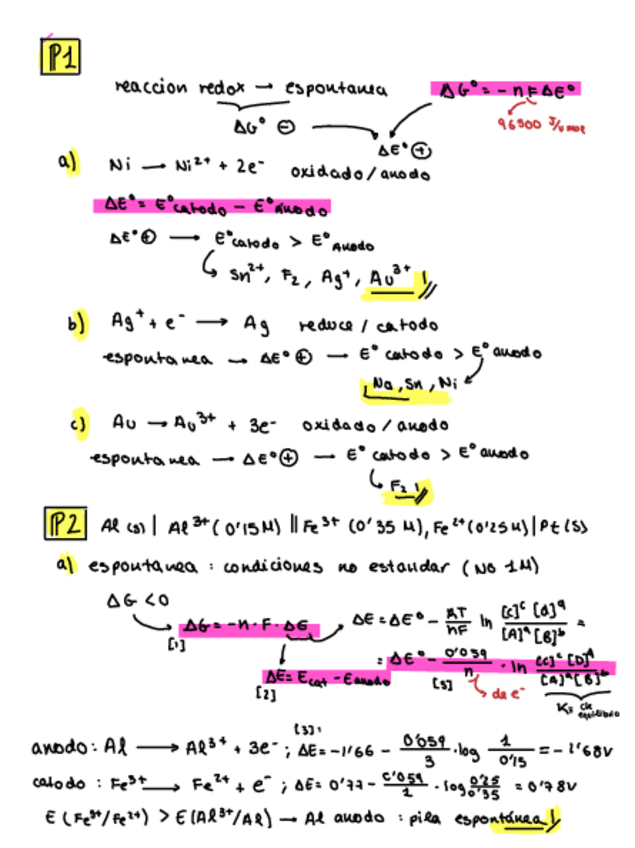 P1
reaccion redox → espontanea ΔG° = - n F ΔE°
96500 J/V mol
ΔG° ⊖ → ΔE° ⊕
a) Ni → Ni²⁺ + 2e⁻ oxidado / anodo
ΔE° = E°catodo - E°Anodo
ΔE° ⊕ → E°catodo > E°Anodo
↳ Sn²⁺, F₂, Ag⁺, Au³⁺
b) Ag⁺ + e⁻ → Ag reduce / catodo
espontanea → ΔE° ⊕ → E° catodo > E° anodo
Na, Sn, Ni
c) Au → Au³⁺ + 3e⁻ oxidado / anodo
espontanea → ΔE° ⊕ → E° catodo > E° anodo
↳ F₂
P2 Al (s) | Al³⁺ (0'15 M) || Fe³⁺ (0'35 M), Fe²⁺ (0'25 M) | Pt (s)
a) espontanea : condiciones no estandar (NO 1M)
ΔG < 0
[1] ΔG = -n · F · ΔE → ΔE = ΔE° - RT/nF ln [C]ᶜ [D]ᵈ / [A]ᵃ [B]ᵇ =
[2] ΔE = Ecat - Eanodo
= ΔE° - 0'059/n · ln [C]ᶜ [D]ᵈ / [A]ᵃ [B]ᵇ
[3] de e⁻
K = cte equilibrio
[3]:
anodo : Al → Al³⁺ + 3e⁻ ; ΔE = -1'66 - 0'059/3 · log 1/0'15 = -1'68V
catodo : Fe³⁺ → Fe²⁺ + e⁻ ; ΔE = 0'77 - 0'059/1 · log 0'25/0'35 = 0'78V
E (Fe³⁺/Fe²⁺) > E (Al³⁺/Al) → Al anodo : pila espontánea!